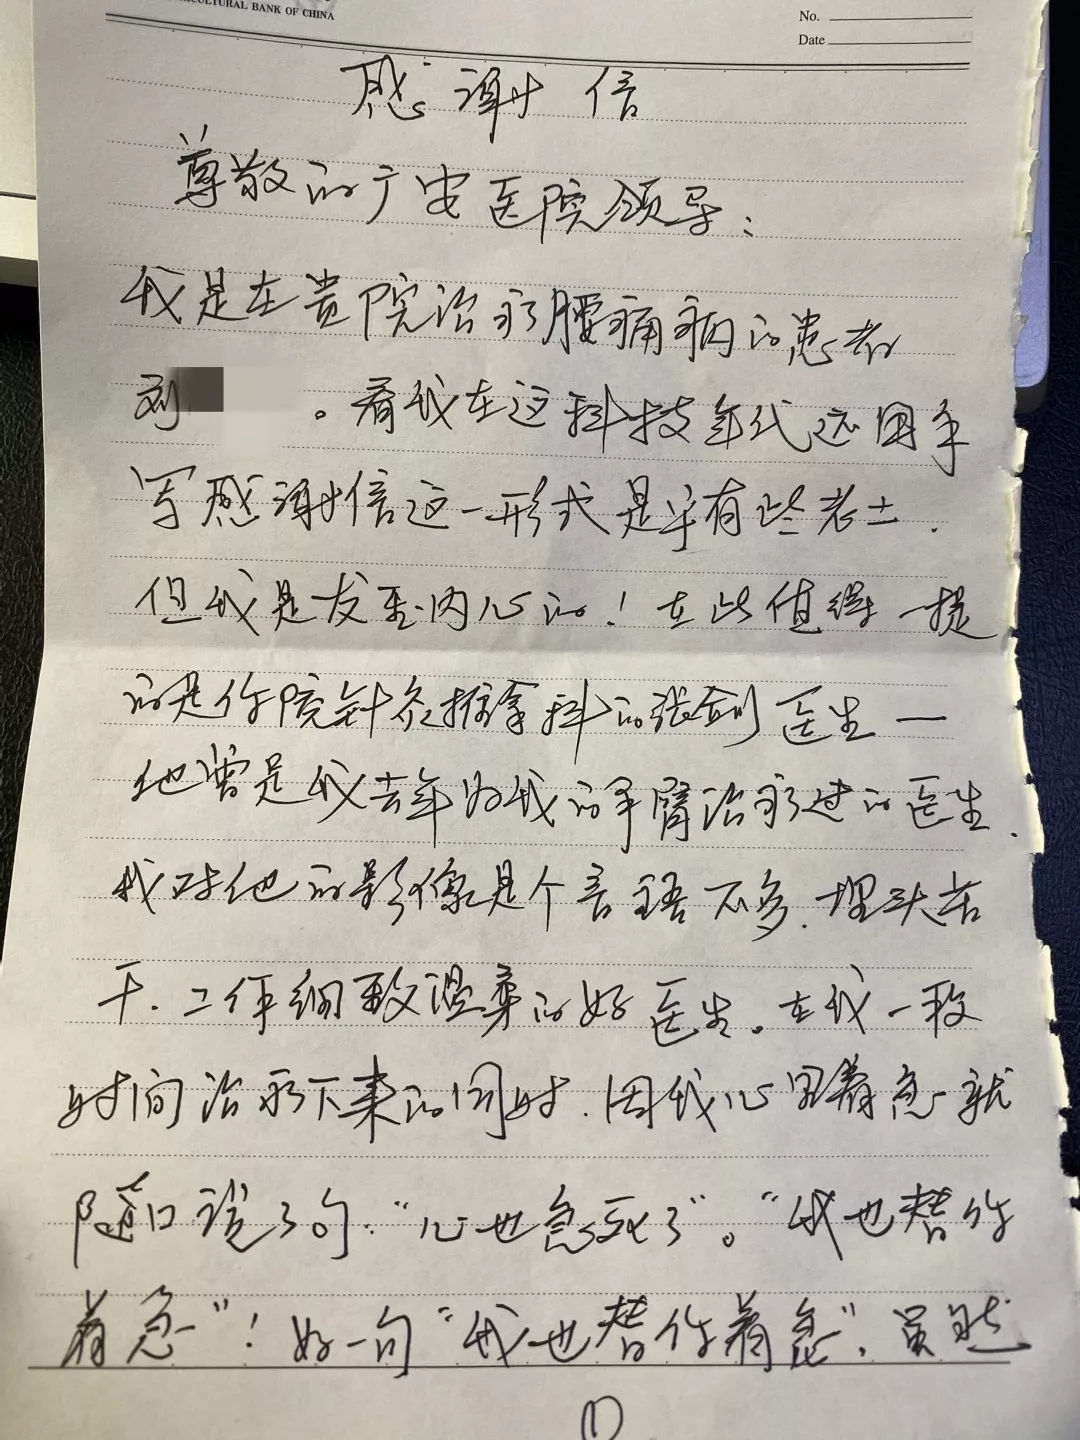 CULTURAL BANK OF CHINA
No.
Date
感谢信
尊敬的广安医院领导：
我是在贵院治疗腰痛病的患者
刘 。看我在这科技年代还用手
写感谢信这一形式是乎有些老土.
但我是发至内心的！在此值得一提
的是你院针灸推拿科的张剑医生一
他曾是我去年为我的手臂治疗过的医生.
我对他的影像是个言语不多.埋头苦
干.工作细致温柔的好医生。在我一段
时间治疗下来的同时.因我心里着急就
随口说了句：“心也急死了”。“我也替你
着急”！好一句“我也替你着急”，虽然
(1)